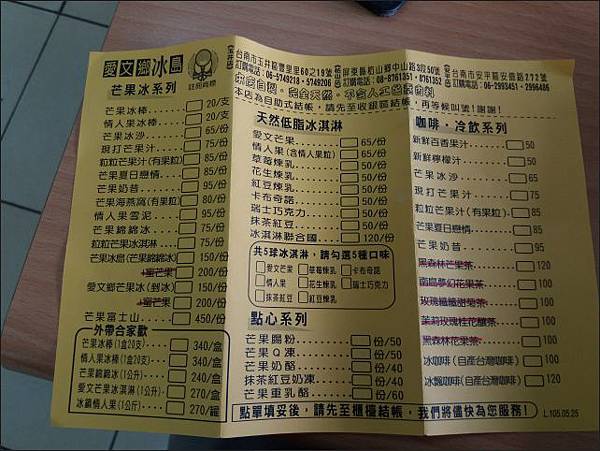 愛文鄉冰島
註冊商標
芒果冰系列
芒果冰棒......20/支
情人果冰棒......20/支
芒果冰沙......65/份
現打芒果汁......75/份
粒粒芒果汁(有果粒)......85/份
芒果夏日戀情......85/份
芒果奶昔......95/份
芒果海燕窩(有果粒)......80/份
情人果雪泥......95/份
芒果綿綿冰......75/份
粒粒芒果冰淇淋......75/份
芒果冰島(芒果綿綿冰)......150/份
蜜芒果......200/份
愛文鄉芒果冰(剉冰)......150/份
蜜芒果......200/份
芒果富士山......450/份
外帶合家歡
芒果冰棒(1盒20支)......340/盒
情人果冰棒(1盒20支)......340/盒
芒果綿綿冰(1公升)......240/盒
愛文芒果冰淇淋(1公升)......270/盒
冰鎮情人果(1公斤)......270/罐
台南市玉井區豐里里60之19號
訂購電話:06-5749218・5749206
屏東縣枋山鄉中山路3段50號
訂購電話:08-8761351・8761352
台南市安平區安億路272號
訂購電話:06-2993451・2996486
本產自製・完全天然・不含人工
本店為自助式結帳,請先至收銀區結帳,再等候叫號!謝謝!
天然低脂冰淇淋
愛文芒果......65/份
情人果(含情人果粒)......65/份
草莓煉乳......65/份
花生煉乳......65/份
紅豆煉乳......65/份
卡布奇諾......65/份
瑞士巧克力......65/份
抹茶紅豆......65/份
冰淇淋聯合國......120/份
共5球冰淇淋,請勾選5種口味
愛文芒果 草莓煉乳 卡布奇諾
情人果 花生煉乳 瑞士巧克力
抹茶紅豆 紅豆煉乳
點心系列
芒果腸粉......份/50
芒果Q凍......份/50
芒果奶酪......份/40
抹茶紅豆奶凍......份/40
芒果重乳酪......份/60
咖啡・冷飲系列
新鮮百香果汁......50
新鮮檸檬汁......50
芒果冰沙......65
現打芒果汁......75
粒粒芒果汁(有果粒)......85
芒果夏日戀情......85
芒果奶昔......95
黑森林芒果茶......120
南島夢幻花果茶......100
玫瑰纖纖甜菊茶......100
茉莉玫瑰桂花釀茶......100
黑森林花果茶......100
冰咖啡(自產台灣咖啡)......100
冰飄咖啡(自產台灣咖啡)......120
點單填妥後,請先至櫃檯結帳,我們將儘快為您服務!
L.105.05.25